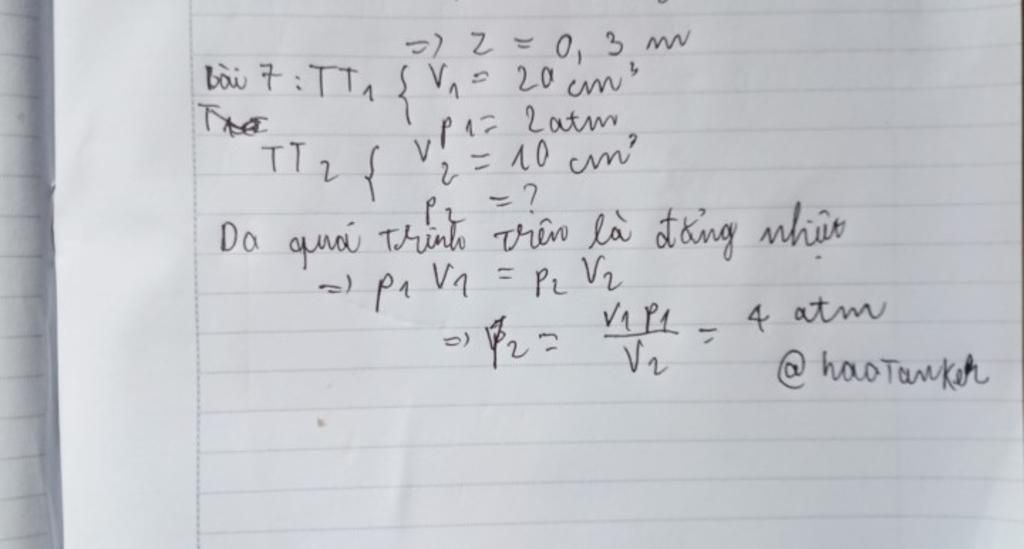 => Z = 0,3 m
Bài 7: TT1 { V1 = 20 cm³
p1 = 2atm
TT2 { V2 = 10 cm³
p2 = ?
Da quá trình trên là đẳng nhiệt
=> p1 V1 = p2 V2
=> p2 = V1 p1 / V2 = 4 atm
@haoTanker